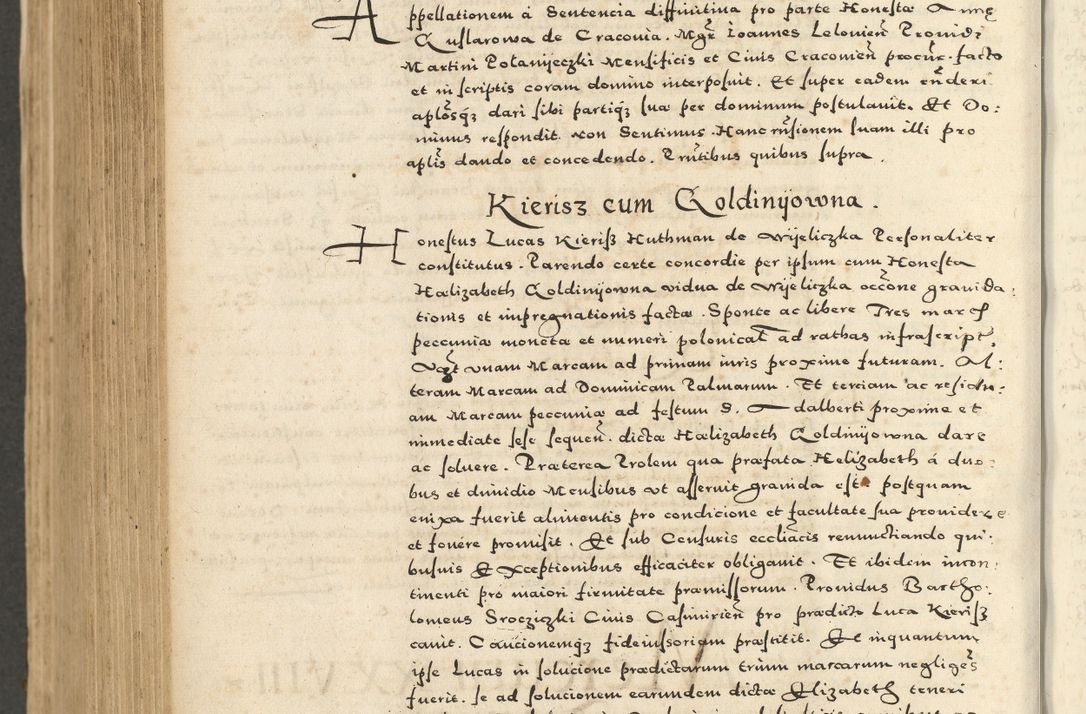 Appellationem á Sentencia diffinitiua pro parte Honestæ Annę
Guslarowa de Cracouia. Mgr Ioannes Lelouien Prouidi
Martini Polanijeczki Mensificis et Ciuis Cracouien procur. facto
et in scriptis coram domino interposuit. Et super eadem rñderi
aplosq3 dari sibi partiq3 suæ per dominum postulauit. Et Do:
minus respondit non Sentimus. Hanc rñsionem suam illi pro
aplis dando et concedendo. Pñtibus quibus supra.
Kierisz cum Goldinijowna.
Honestus Lucas Kierisz Huthman de Wijeliczka Personaliter
constitutus. Parendo certe concordie per ipsum cum Honesta
Hælizabeth Goldinijowna vidua de Wijeliczka occõne grauida:
tionis et impregnationis factæ. Sponte ac libere Tres marcas
peccuniæ moneta et numeri polonical ad rathas infrascript
Vnam Marcam ad primam iuris proxime futuram. Al:
teram Marcam ad Dominicam Palmarum. Et terciam ac residu:
am Marcam peccuniæ ad festum S. Adalberti proxime et
immediate sese sequen. dictæ Hælizabeth Goldinijowna dare
ac soluere. Præterea Prolem qua præfata Helizabeth á duo:
bus et dimidio Mensibus vt asseruit grauida est postquam
enixa fuerit alimentis pro condicione et facultate sua prouidere
et fouere promisit. Et sub Censuris eccliacis renunctiando qui:
busuis Exceptionibus efficaciter obligauit. Et ibidem incon:
tinenti pro maiori firmitate præmissorum. Prouidus Bartho:
lomeus Srocziczki Ciuis Casimirien pro prædicto Luca Kierisz
cauit. Caucionemq3 fideiussoriam præstitit. Et inquantum
ipse Lucas in solucione prædictarum trium marcarum negliges
fuerit. se ad solucionem earundem dictæ Elizabeth teneri